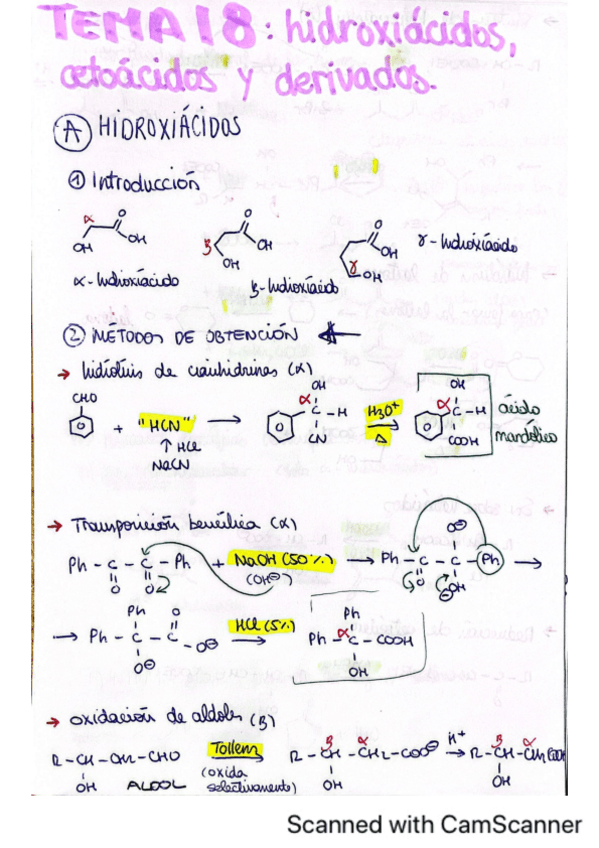 TEMA 18: hidroxiácidos,
cetoácidos y derivados.
A HIDROXIÁCIDOS
① Introducción
α O
OH OH
α-hidroxiácido
β O OH
OH
β-hidroxiácido
O OH
γ OH
γ-hidroxiácido
② MÉTODOS DE OBTENCIÓN
→ hidrólisis de cianhidrinas (α)
CHO + "HCN" → OH α C - H CN H3O+ Δ OH α C - H COOH ácido mandélico
↑ HCl
NaCN
→ Transposición bencílica (α)
Ph - C - C - Ph + NaOH (50%) → Ph - C - C - Ph →
O O (OH⊖) O O⊖ OH
→ Ph - C - C - O⊖ HCl (5%) Ph - C - COOH
Ph O O⊖ Ph α OH
→ oxidación de aldoles (β)
R - CH - CH2 - CHO Tollens R - CH - CH2 - COO⊖ H+ → R - CH - CH2 COOH
OH ALDOL (oxida selectivamente) β α OH β α OH
Scanned with CamScanner